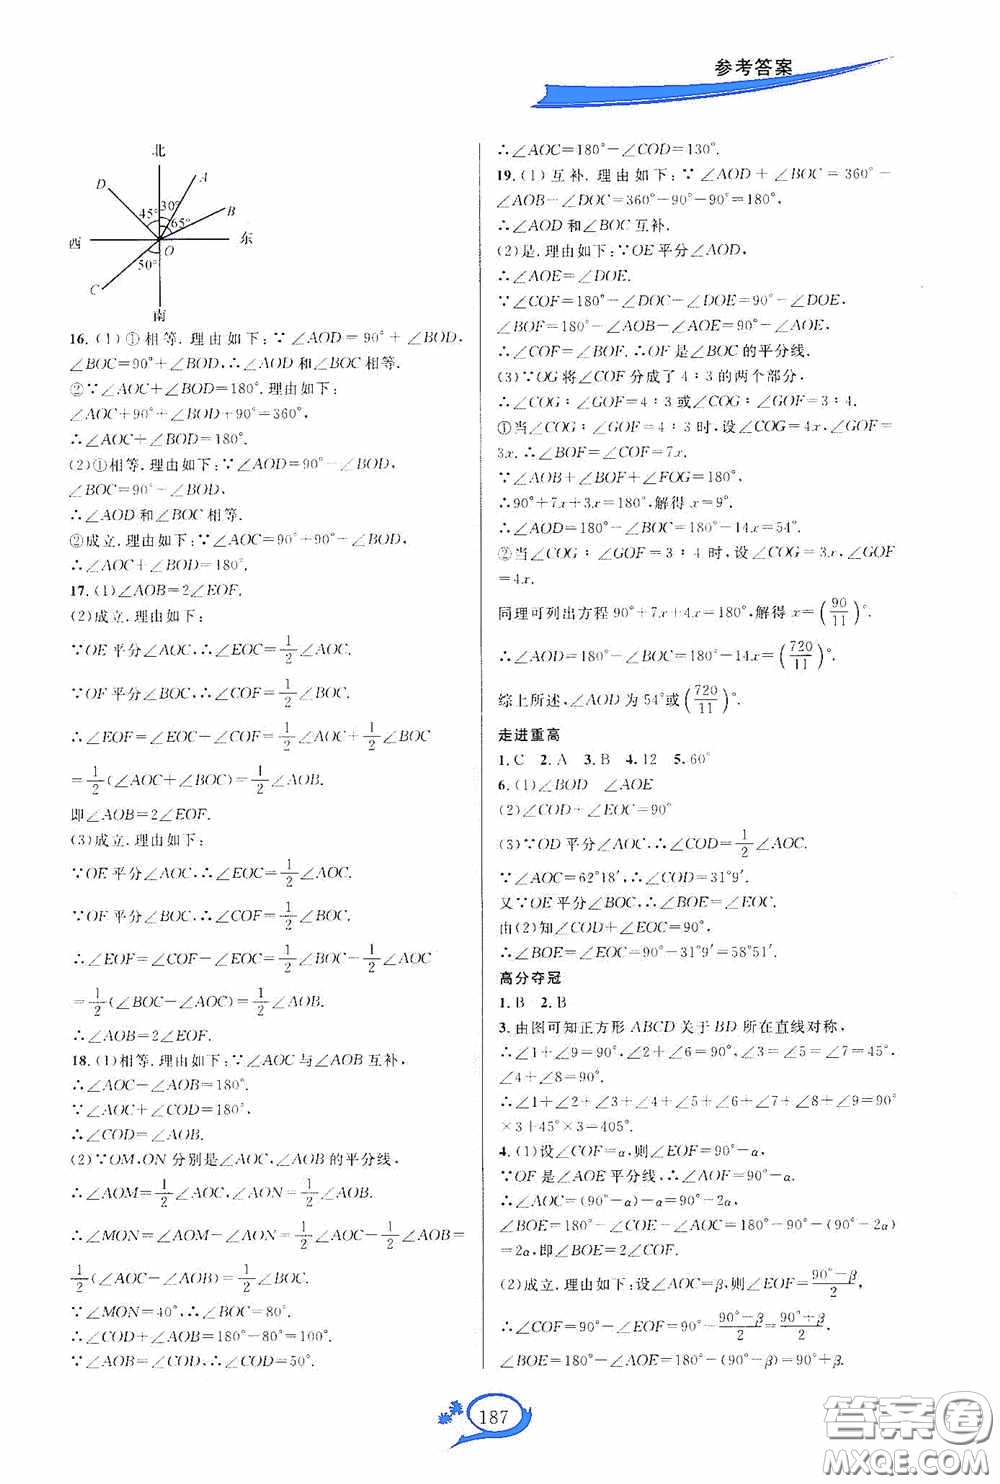 参考答案
北
D
A
45°
30°
B
65°
西
东
O
50°
C
南
16.(1)①相等.理由如下:∵∠AOD=90°+∠BOD,
∠BOC=90°+∠BOD,∴∠AOD和∠BOC相等.
②∵∠AOC+∠BOD=180°.理由如下:
∠AOC+90°+∠BOD+90°=360°,
∴∠AOC+∠BOD=180°.
(2)①相等.理由如下:∵∠AOD=90°-∠BOD,
∠BOC=90°-∠BOD,
∴∠AOD和∠BOC相等.
②成立.理由如下:∵∠AOC=90°+90°-∠BOD,
∴∠AOC+∠BOD=180°.
17.(1)∠AOB=2∠EOF.
(2)成立.理由如下:
∵OE平分∠AOC,∴∠EOC=1/2∠AOC.
∵OF平分∠BOC,∴∠COF=1/2∠BOC.
∴∠EOF=∠EOC-∠COF=1/2∠AOC+1/2∠BOC
=1/2(∠AOC+∠BOC)=1/2∠AOB.
即∠AOB=2∠EOF.
(3)成立.理由如下:
∵OE平分∠AOC,∴∠EOC=1/2∠AOC.
∵OF平分∠BOC,∴∠COF=1/2∠BOC.
∴∠EOF=∠COF-∠EOC=1/2∠BOC-1/2∠AOC
=1/2(∠BOC-∠AOC)=1/2∠AOB.
∴∠AOB=2∠EOF.
18.(1)相等.理由如下:∵∠AOC与∠AOB互补,
∴∠AOC-∠AOB=180°.
∵∠AOC+∠COD=180°,
∴∠COD=∠AOB.
(2)∵OM,ON分别是∠AOC,∠AOB的平分线,
∴∠AOM=1/2∠AOC,∠AON=1/2∠AOB.
∴∠MON=∠AOM-∠AON=1/2∠AOC-1/2∠AOB=
1/2(∠AOC-∠AOB)=1/2∠BOC.
∵∠MON=40°,∴∠BOC=80°.
∴∠COD+∠AOB=180°-80°=100°.
∵∠AOB=∠COD,∴∠COD=50°.
∴∠AOC=180°-∠COD=130°.
19.(1)互补.理由如下:∵∠AOD+∠BOC=360°-
∠AOB-∠DOC=360°-90°-90°=180°,
∴∠AOD和∠BOC互补.
(2)是.理由如下:∵OE平分∠AOD,
∴∠AOE=∠DOE.
∵∠COF=180°-∠DOC-∠DOE=90°-∠DOE,
∠BOF=180°-∠AOB-∠AOE=90°-∠AOE,
∴∠COF=∠BOF.∴OF是∠BOC的平分线.
(3)∵OG将∠COF分成了4:3的两个部分,
∴∠COG:∠GOF=4:3或∠COG:∠GOF=3:4.
①当∠COG:∠GOF=4:3时,设∠COG=4x,∠GOF=
3x.∴∠BOF=∠COF=7x.
∵∠AOB+∠BOF+∠FOG=180°,
∴90°+7x+3x=180°,解得x=9°.
∴∠AOD=180°-∠BOC=180°-14x=54°.
②当∠COG:∠GOF=3:4时,设∠COG=3x,∠GOF
=4x.
同理可列出方程90°+7x+4x=180°,解得x=(90/11)°.
∴∠AOD=180°-∠BOC=180°-14x=(720/11)°.
综上所述,∠AOD为54°或(720/11)°.
走进重高
1.C 2.A 3.B 4.12 5.60°
6.(1)∠BOD ∠AOE
(2)∠COD+∠EOC=90°
(3)∵OD平分∠AOC,∴∠COD=1/2∠AOC.
∵∠AOC=62°18′,∴∠COD=31°9′.
又∵OE平分∠BOC,∴∠BOE=∠EOC.
由(2)知∠COD+∠EOC=90°,
∴∠BOE=∠EOC=90°-31°9′=58°51′.
高分夺冠
1.B 2.B
3.由图可知正方形ABCD关于BD所在直线对称,
∴∠1+∠9=90°,∠2+∠6=90°,∠3=∠5=∠7=45°,
∠4+∠8=90°.
∴∠1+∠2+∠3+∠4+∠5+∠6+∠7+∠8+∠9=90°
×3+45°×3=405°.
4.(1)设∠COF=α,则∠EOF=90°-α.
∵OF是∠AOE平分线,
∴∠AOC=(90°-α)-α=90°-2α,
∠BOE=180°-∠COE-∠AOC=180°-90°-(90°-2α)
=2α,即∠BOE=2∠COF.
(2)成立.理由如下:设∠AOC=β,则∠EOF=(90°-β)/2,
∴∠COF=90°-∠EOF=90°-(90°-β)/2=(90°+β)/2.
∠BOE=180°-∠AOE=180°-(90°-β)=90°+β.
187
答案卷
MXQE.COM